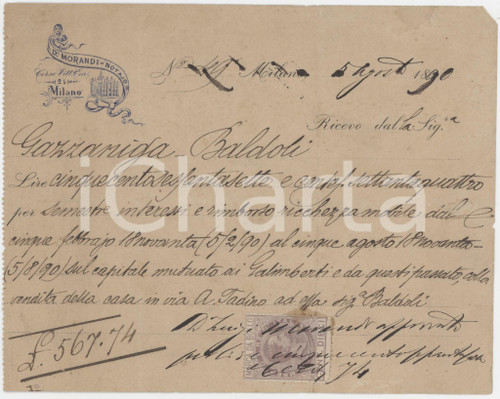 Dr. MORANDI NOTAJO
Corso Vitt. Em.
24
Milano
No. 49 Milano 5 agosto 1890
Ricevo dalla Sig.a
Gazzaniga Baldoli
iCharta
Lire cinquecentosessantasette e cent. settantaquattro
per semestre interessi e rimborso ricchezza mobile dal
cinque febbrajo 18novanta (5/2/90) al cinque agosto 18novanta
(5/8/90) sul capitale mutuato ai Galimberti e da questi passato, colla
vendita della casa in via A. Tadino ad essa sig.a Baldoli
£. 567.74
Morandi
74